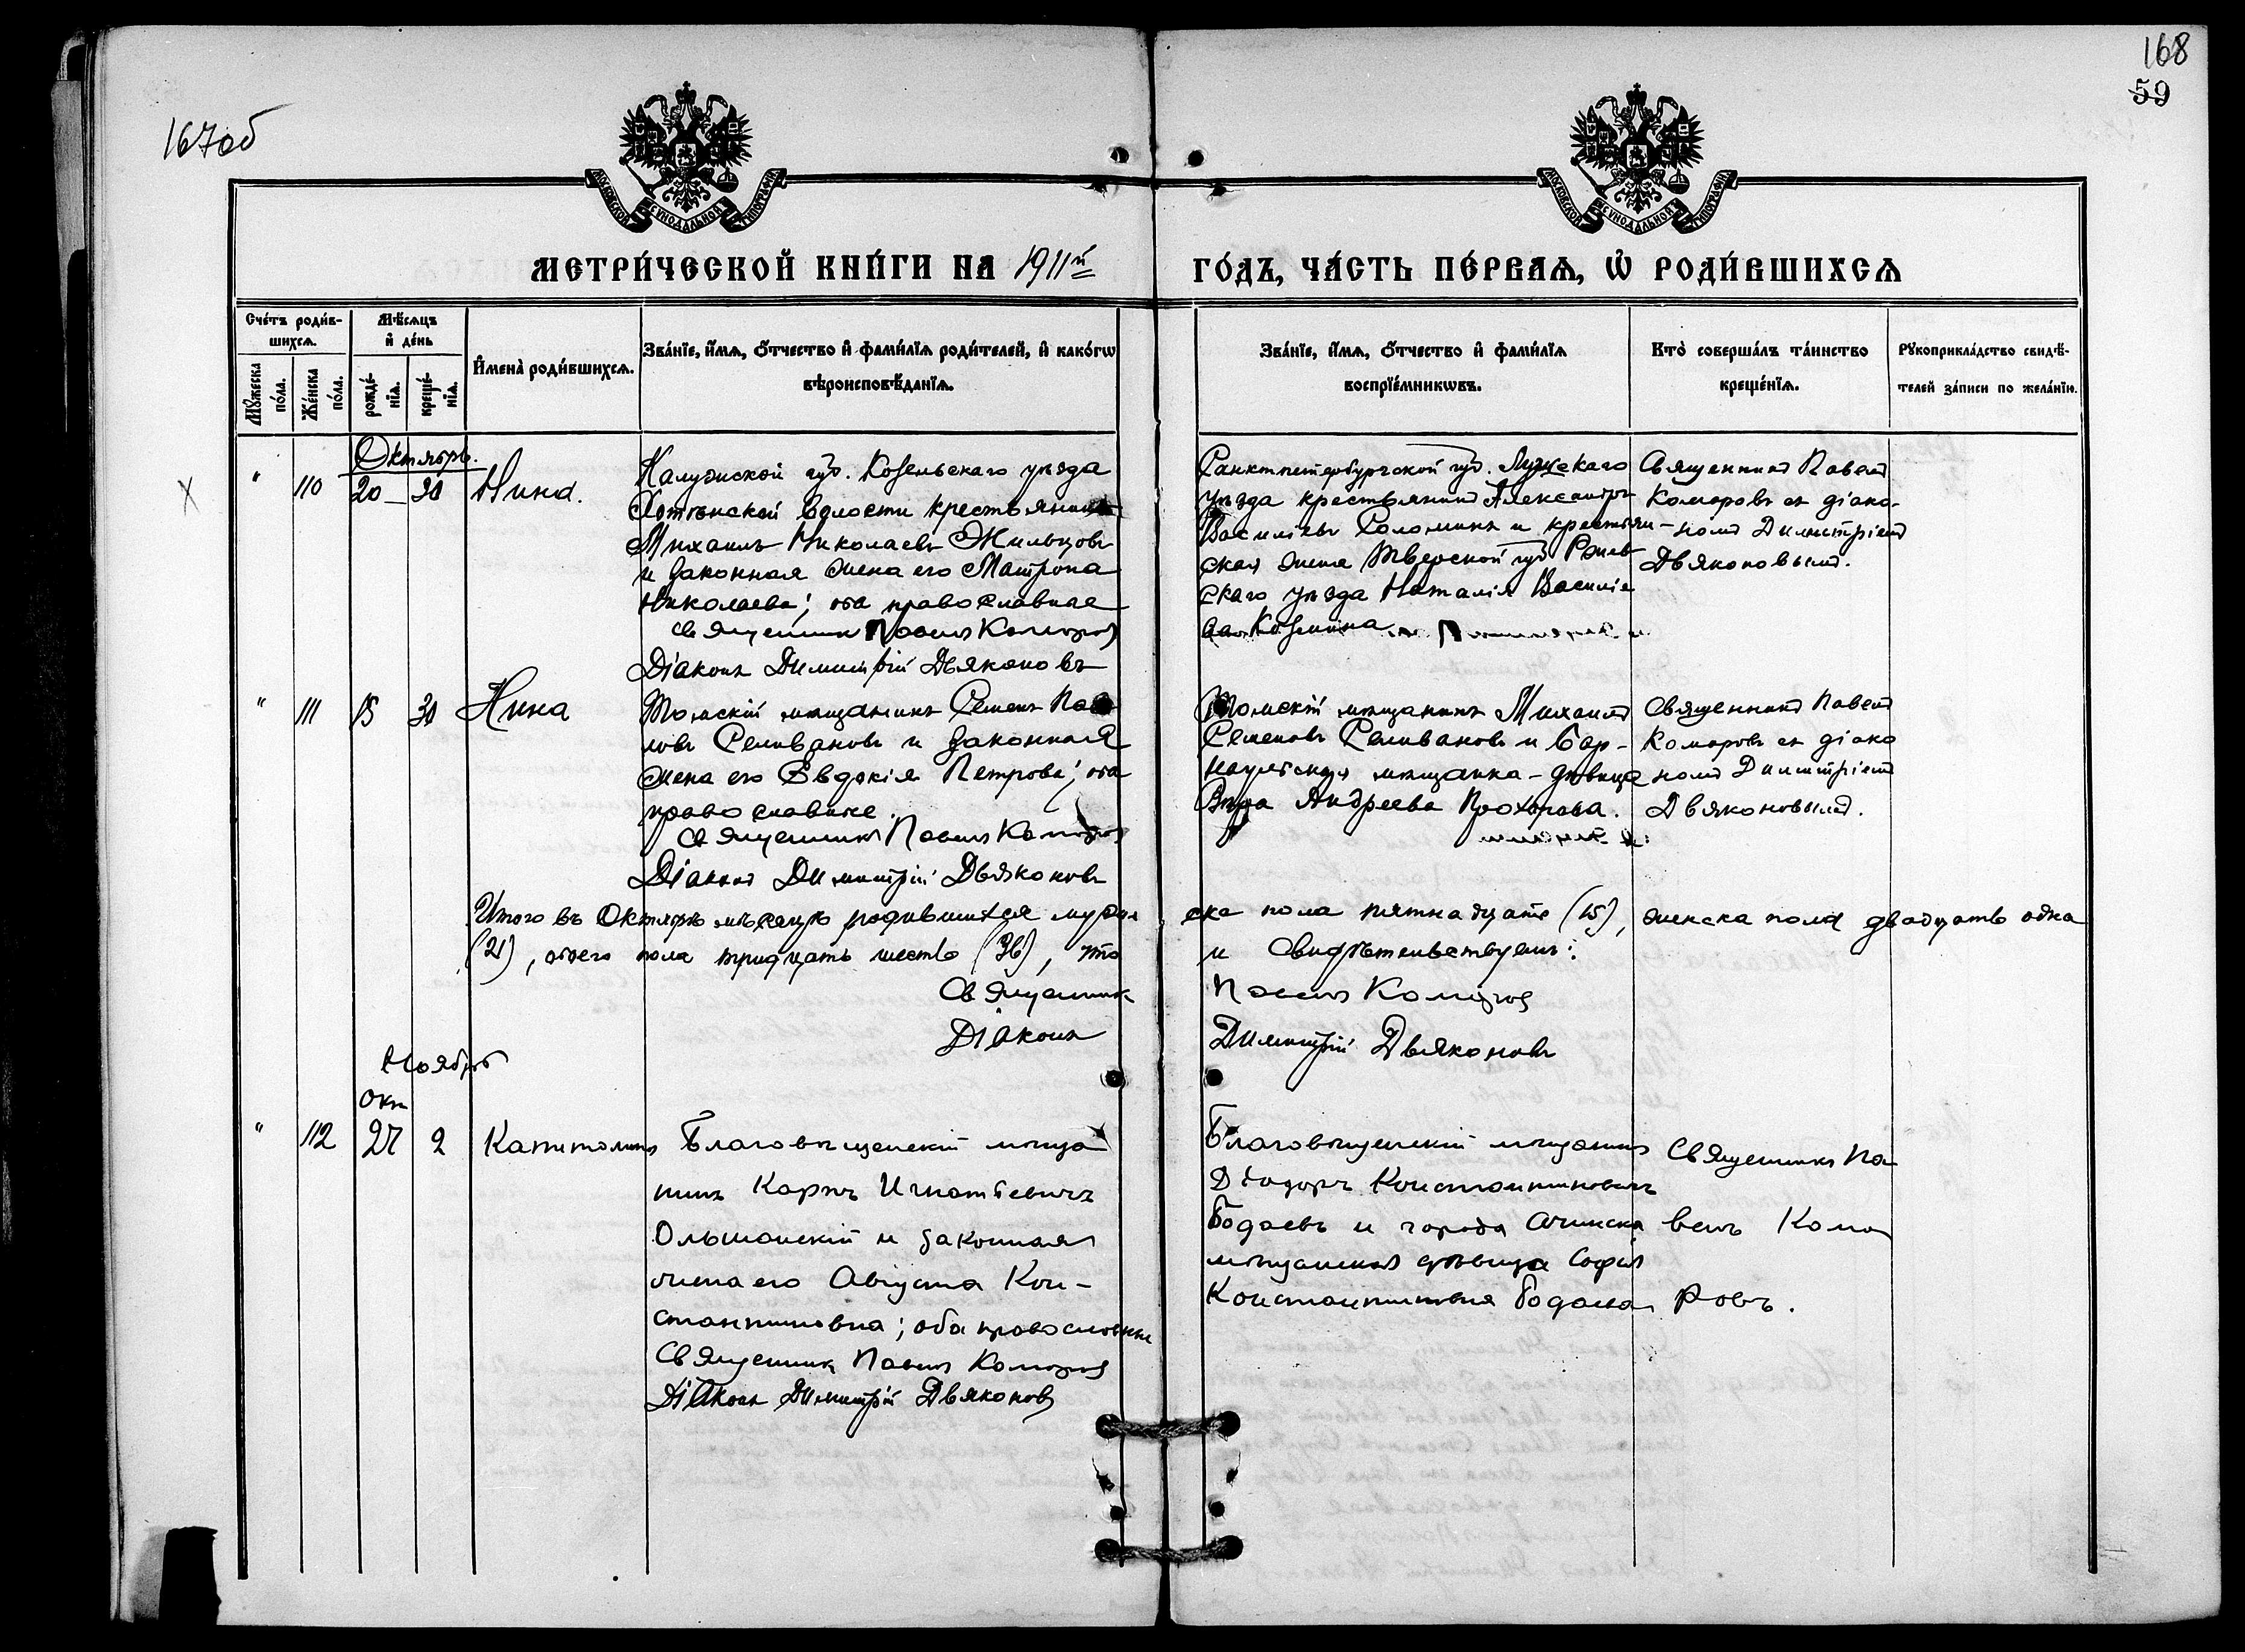 168
59
167об
МОСКОВСКОЙ СУНОДАЛЬНОЙ ТИПОГРАФІИ
МОСКОВСКОЙ СУНОДАЛЬНОЙ ТИПОГРАФІИ
МЕТРИ́ЧЕСКОЙ КНИ́ГИ НА 1911й
ГО́ДЪ, ЧА́СТЬ ПЕ́РВАѦ, Ѡ҆ РОДИ́ВШИХСѦ
Сче́тъ роди́в-
шихсѧ.
Мѣ́сѧцъ
и҆ де́нь
Мꙋ́жеска
по́ла.
Же́нска
по́ла.
рожде́-
нїѧ.
креще́-
нїѧ.
И҆мена̀ роди́вшихсѧ.
Зва́нїе, и҆́мѧ, ѻ҆́тчество и҆ фами́лїѧ роди́телей, и҆ како́гѡ
вѣроисповѣ́данїѧ.
Зва́нїе, и҆́мѧ, ѻ҆́тчество и҆ фами́лїѧ
воспрїе́мникѡвъ.
Кто̀ соверша́лъ та́инство
креще́нїѧ.
Рꙋкоприкла́дство свидѣ́-
телей за́писи по жела́нїю.
Октябрь.
" 110 20 30 Нина.
Калужской губ. Козельскаго уѣзда
Хотѣнской волости крестьянинъ
Михаилъ Николаевъ Жильцовъ
и законная жена его Матрона
Николаева; оба православные
Священникъ Павелъ Комаровъ
Діаконъ Димитрій Дьяконовъ
Санктпетербургской губ. Лужскаго
уѣзда крестьянинъ Александръ
Васильевъ Соломинъ и крестьян-
ская жена Тверской губ Ржев
скаго уѣзда Наталія Василіе
ва Козмина
Священникъ Павелъ
Комаровъ съ діако-
номъ Димитріемъ
Дьяконовымъ.
" 111 15 30 Нина
Томскій мѣщанинъ Семенъ Пав
ловъ Селивановъ и законная
жена его Евдокія Петрова; оба
православные.
Священникъ Павелъ Комаровъ
Діаконъ Димитрій Дьяконовъ
Томскій мѣщанинъ Михаилъ
Семеновъ Селивановъ и Бар-
наульская мѣщанка-дѣвица
Вѣра Андреева Прохорова.
Священникъ Павелъ
Комаровъ съ діако
номъ Димитріемъ
Дьяконовымъ.
Итого въ Октябрѣ мѣсяцѣ родившихся муже ска пола пятнадцать (15), женска пола двадцать одна
(21), обоего пола тридцать шесть (36), что и свидѣтельствуемъ:
Священникъ Павелъ Комаровъ
Діаконъ Димитрій Дьяконовъ
Ноябрь
Окт
" 112 27 2 Капитолина
Благовѣщенскій мѣща
нинъ Карпъ Игнатьевичъ
Ольшанскій и законная
жена его Августа Кон-
стантиновна; оба православные
Священникъ Павелъ Комаровъ
Діаконъ Димитрій Дьяконовъ
Благовѣщенскій мѣщанинъ
Діодоръ Константиновичъ
Бодаевъ и города Ачинска
мѣщанская дѣвица Софія
Константиновна Бодаева
Священникъ Па
велъ Кома
ровъ.